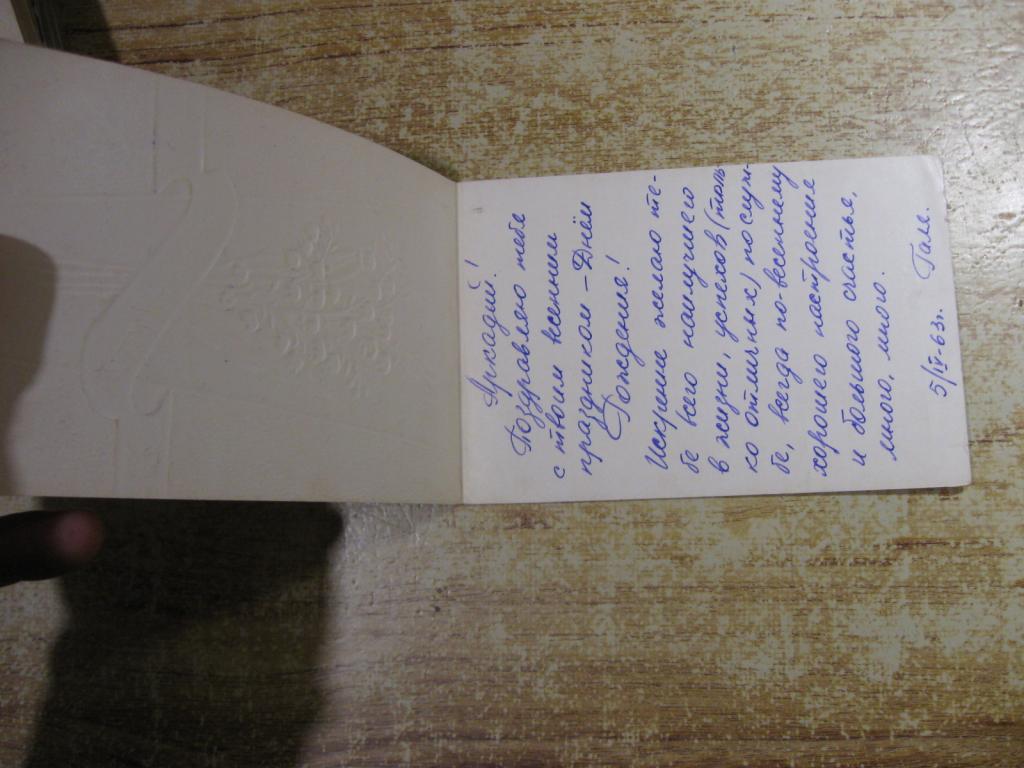 Аркадий!
Поздравляю тебя
с твоим весенним
праздником – Днём
Рождения!
Искренне желаю те-
бе всего наилучшего
в жизни, успехов (толь
ко отличных) по служ-
бе, всегда по-весеннему
хорошего настроения
и большого счастья,
много, много.
Галя.
5/IV-63г.